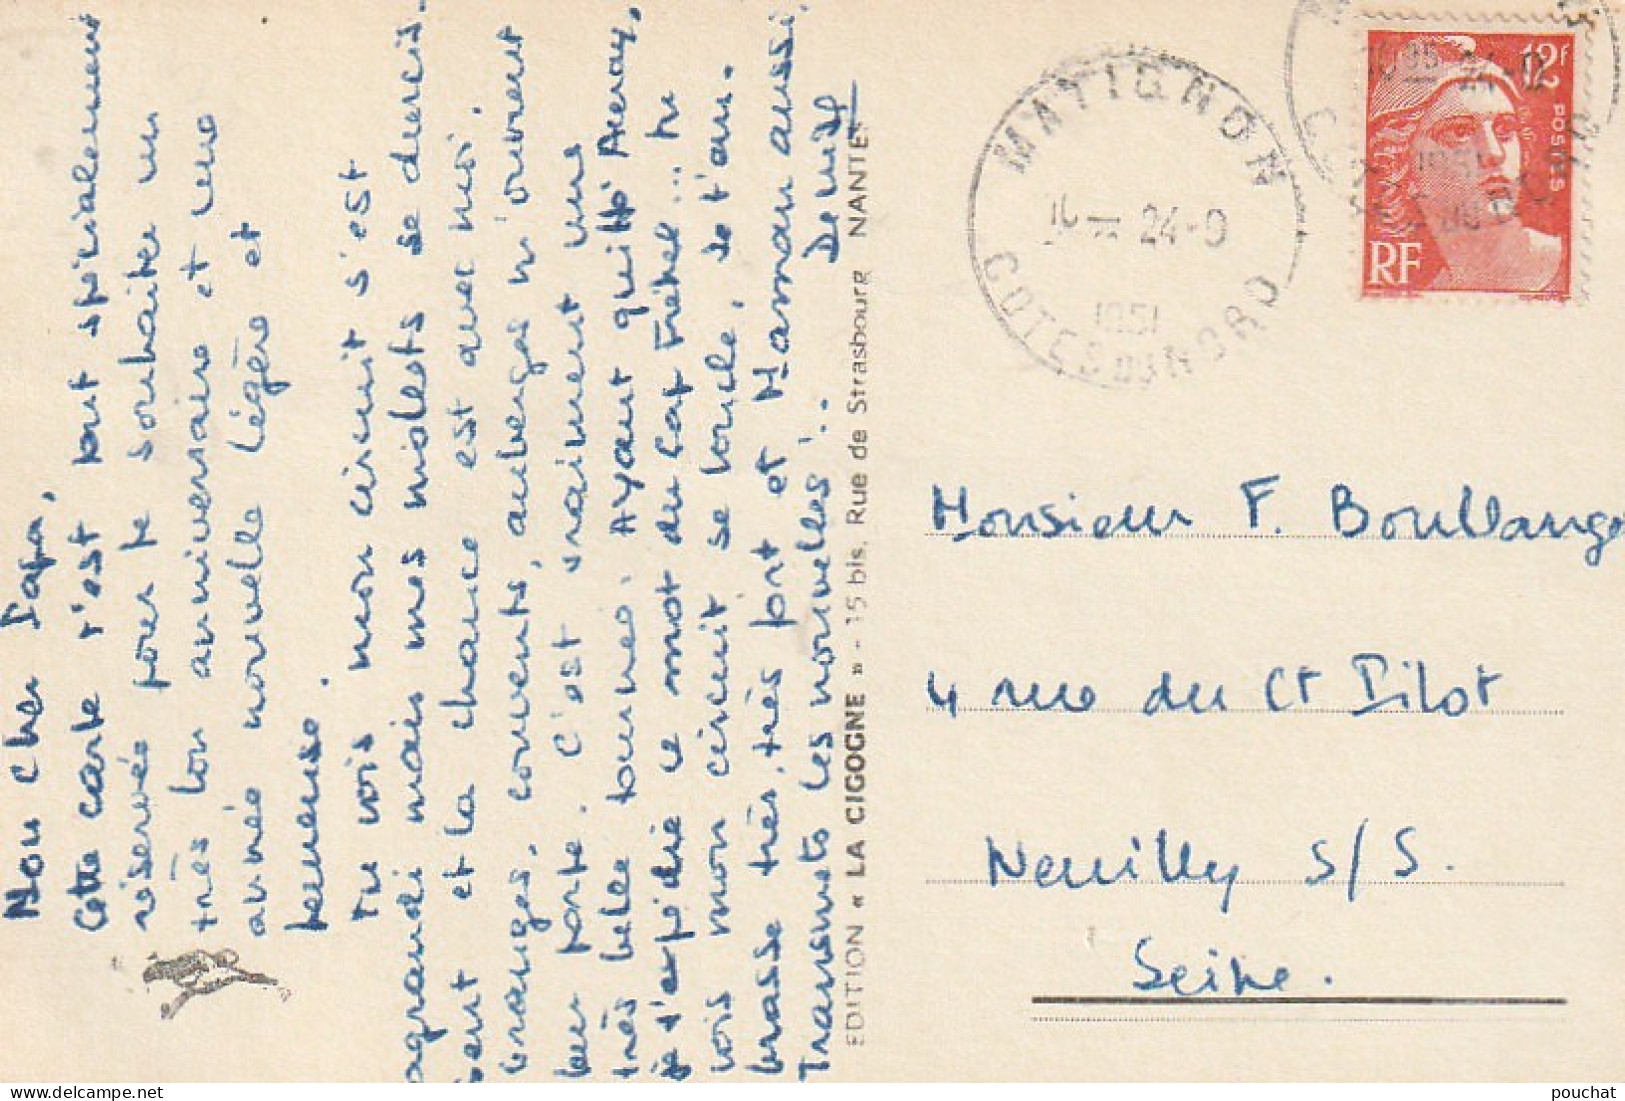 Mon Cher Papa,
Cette carte t'est tout spécialement
réservée pour te souhaiter un
très bon anniversaire et une
année nouvelle légère et
heureuse.
Tu vois mon circuit s'est
agrandi mais mes mollets se durcis-
sent et la chance est avec moi.
Granges, couvents, auberges m'ouvrent
leur porte. C'est vraiment une
très belle tournée. Ayant quitté
je t'expédie ce mot du Cap Fréhel... tu
vois mon circuit se boucle, je t'em-
brasse très, très fort et Maman aussi
Transmets les nouvelles..
EDITION « LA CIGOGNE » - 15 bis, Rue de Strasbourg NANTES
MATIGNON
24-9
1951
COTES DU NORD
12F
POSTES
RF
Monsieur F. Boullange
4 rue du Ct Pilot
Neuilly S/S.
Seine.
pouchat